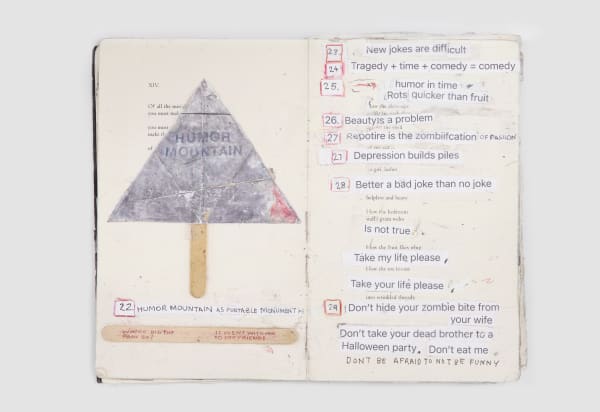 XIV.
Of all the
you must
you must
HUMOR
MOUNTAIN
22. HUMOR MOUNTAIN AS PORTABLE MONUMENT
23. New jokes are difficult
24 Tragedy + time + comedy = comedy
25. humor in time
Rots quicker than fruit
26. Beauty is a problem
27 Repotire is the zombiifcation OF PASSION
27 Depression builds piles
28. Better a bad joke than no joke
helpless and brave
I lose the bedroom
Is not true
I lose the fruit
Take my life please,
Take your life please,
into wrinkled threads
29 Don't hide your zombie bite from
your wife
Don't take your dead brother to a
Halloween party. Don't eat me
DON'T BE AFRAID TO NOT BE FUNNY